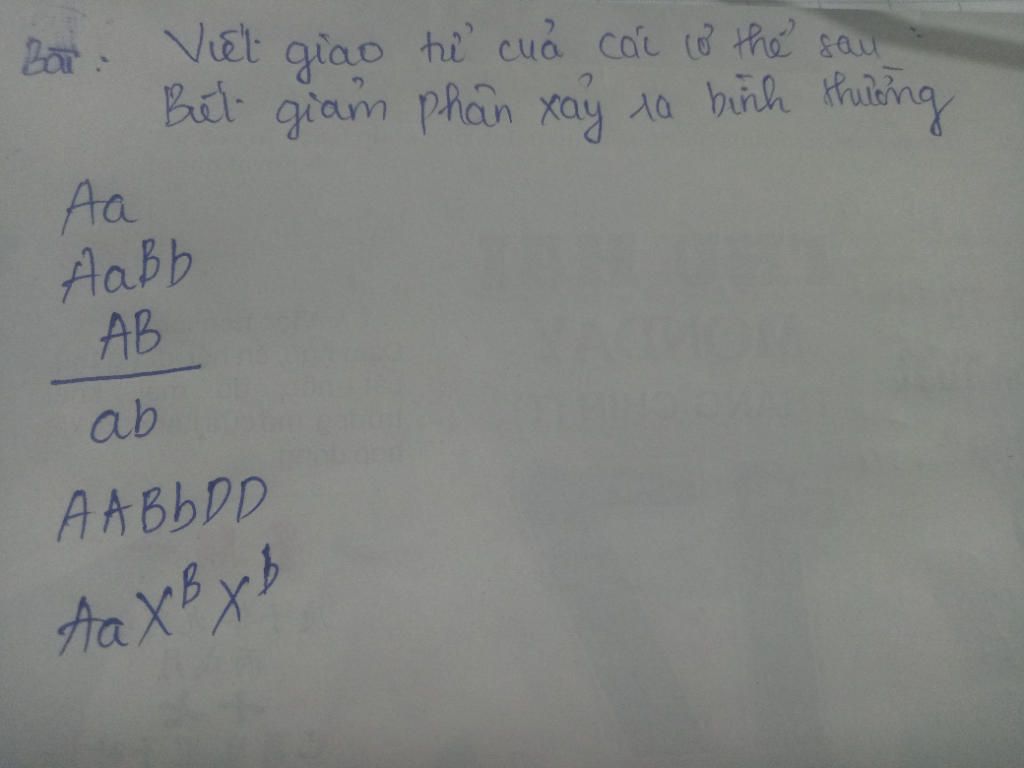 Bài: Viết giao tử của các cơ thể sau:
Biết giảm phân xảy ra bình thường
Aa
AaBb
AB
ab
AABbDD
AaX^BX^b
MONDAY